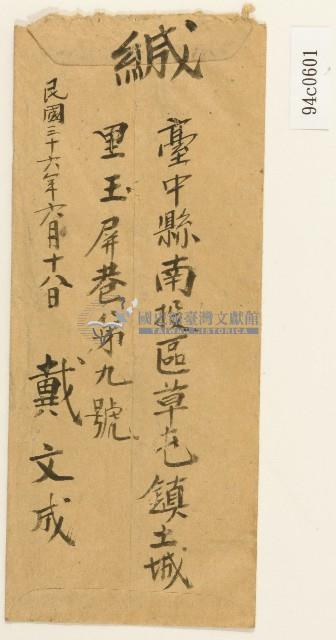 緘
臺中縣南投區草屯鎮土城
里玉屏巷第九號
民國三十六年六月十八日
戴文成
國史館臺灣文獻館
TAIWAN HISTORICA
94c0601